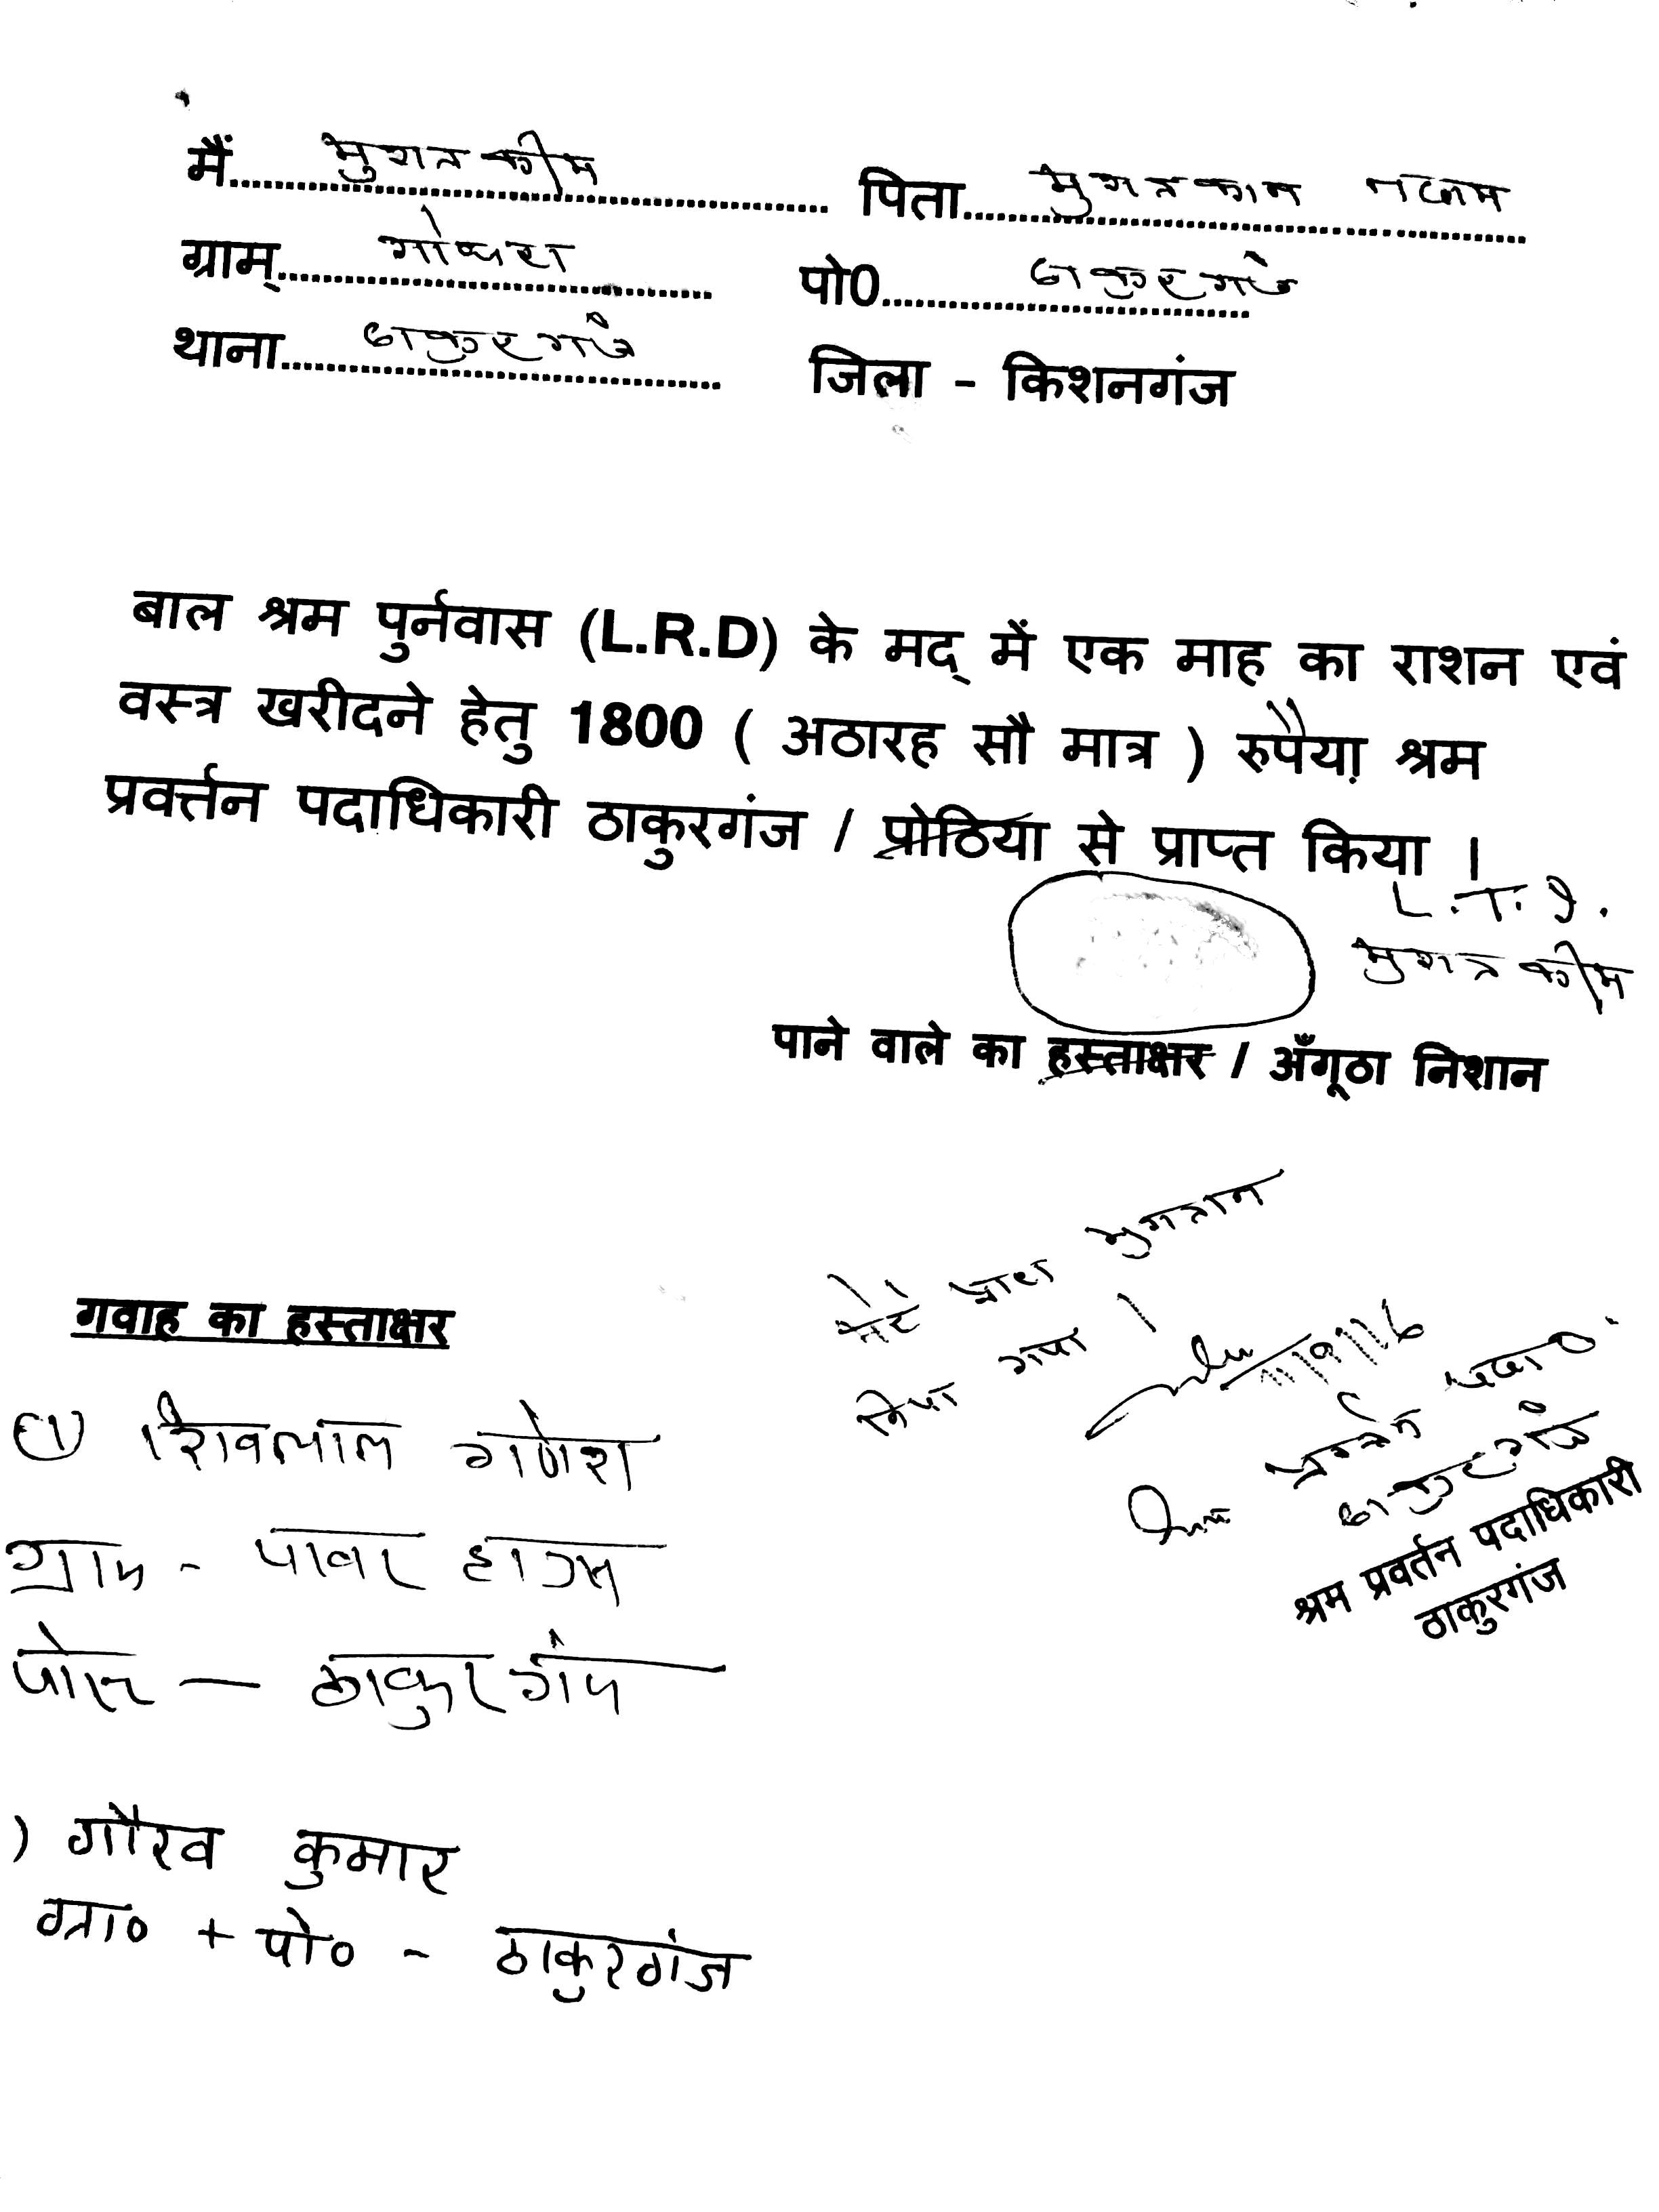 मैं मुशतकीम पिता मुशतकान
ग्राम् पो0 ठाकुरगंज
थाना ठाकुरगंज जिला - किशनगंज
बाल श्रम पुर्नवास (L.R.D) के मद् में एक माह का राशन एवं
वस्त्र खरीदने हेतु 1800 ( अठारह सौ मात्र ) रुपैया श्रम
प्रवर्त्तन पदाधिकारी ठाकुरगंज / प्रोठिया से प्राप्त किया ।
L.T.I.
मुशतकीम
पाने वाले का हस्ताक्षर / अँगूठा निशान
मेरे द्वारा भुगतान
किया गया ।
श्रम प्रवर्तन पदा०
ठाकुरगंज
श्रम प्रवर्तन पदाधिकारी
ठाकुरगंज
गवाह का हस्ताक्षर
(1) शिवलाल गणेश
ग्राम - पावर हाउस
पोस्ट — ठाकुरगंज
) गौरव कुमार
ग्रा० + पो० - ठाकुरगंज